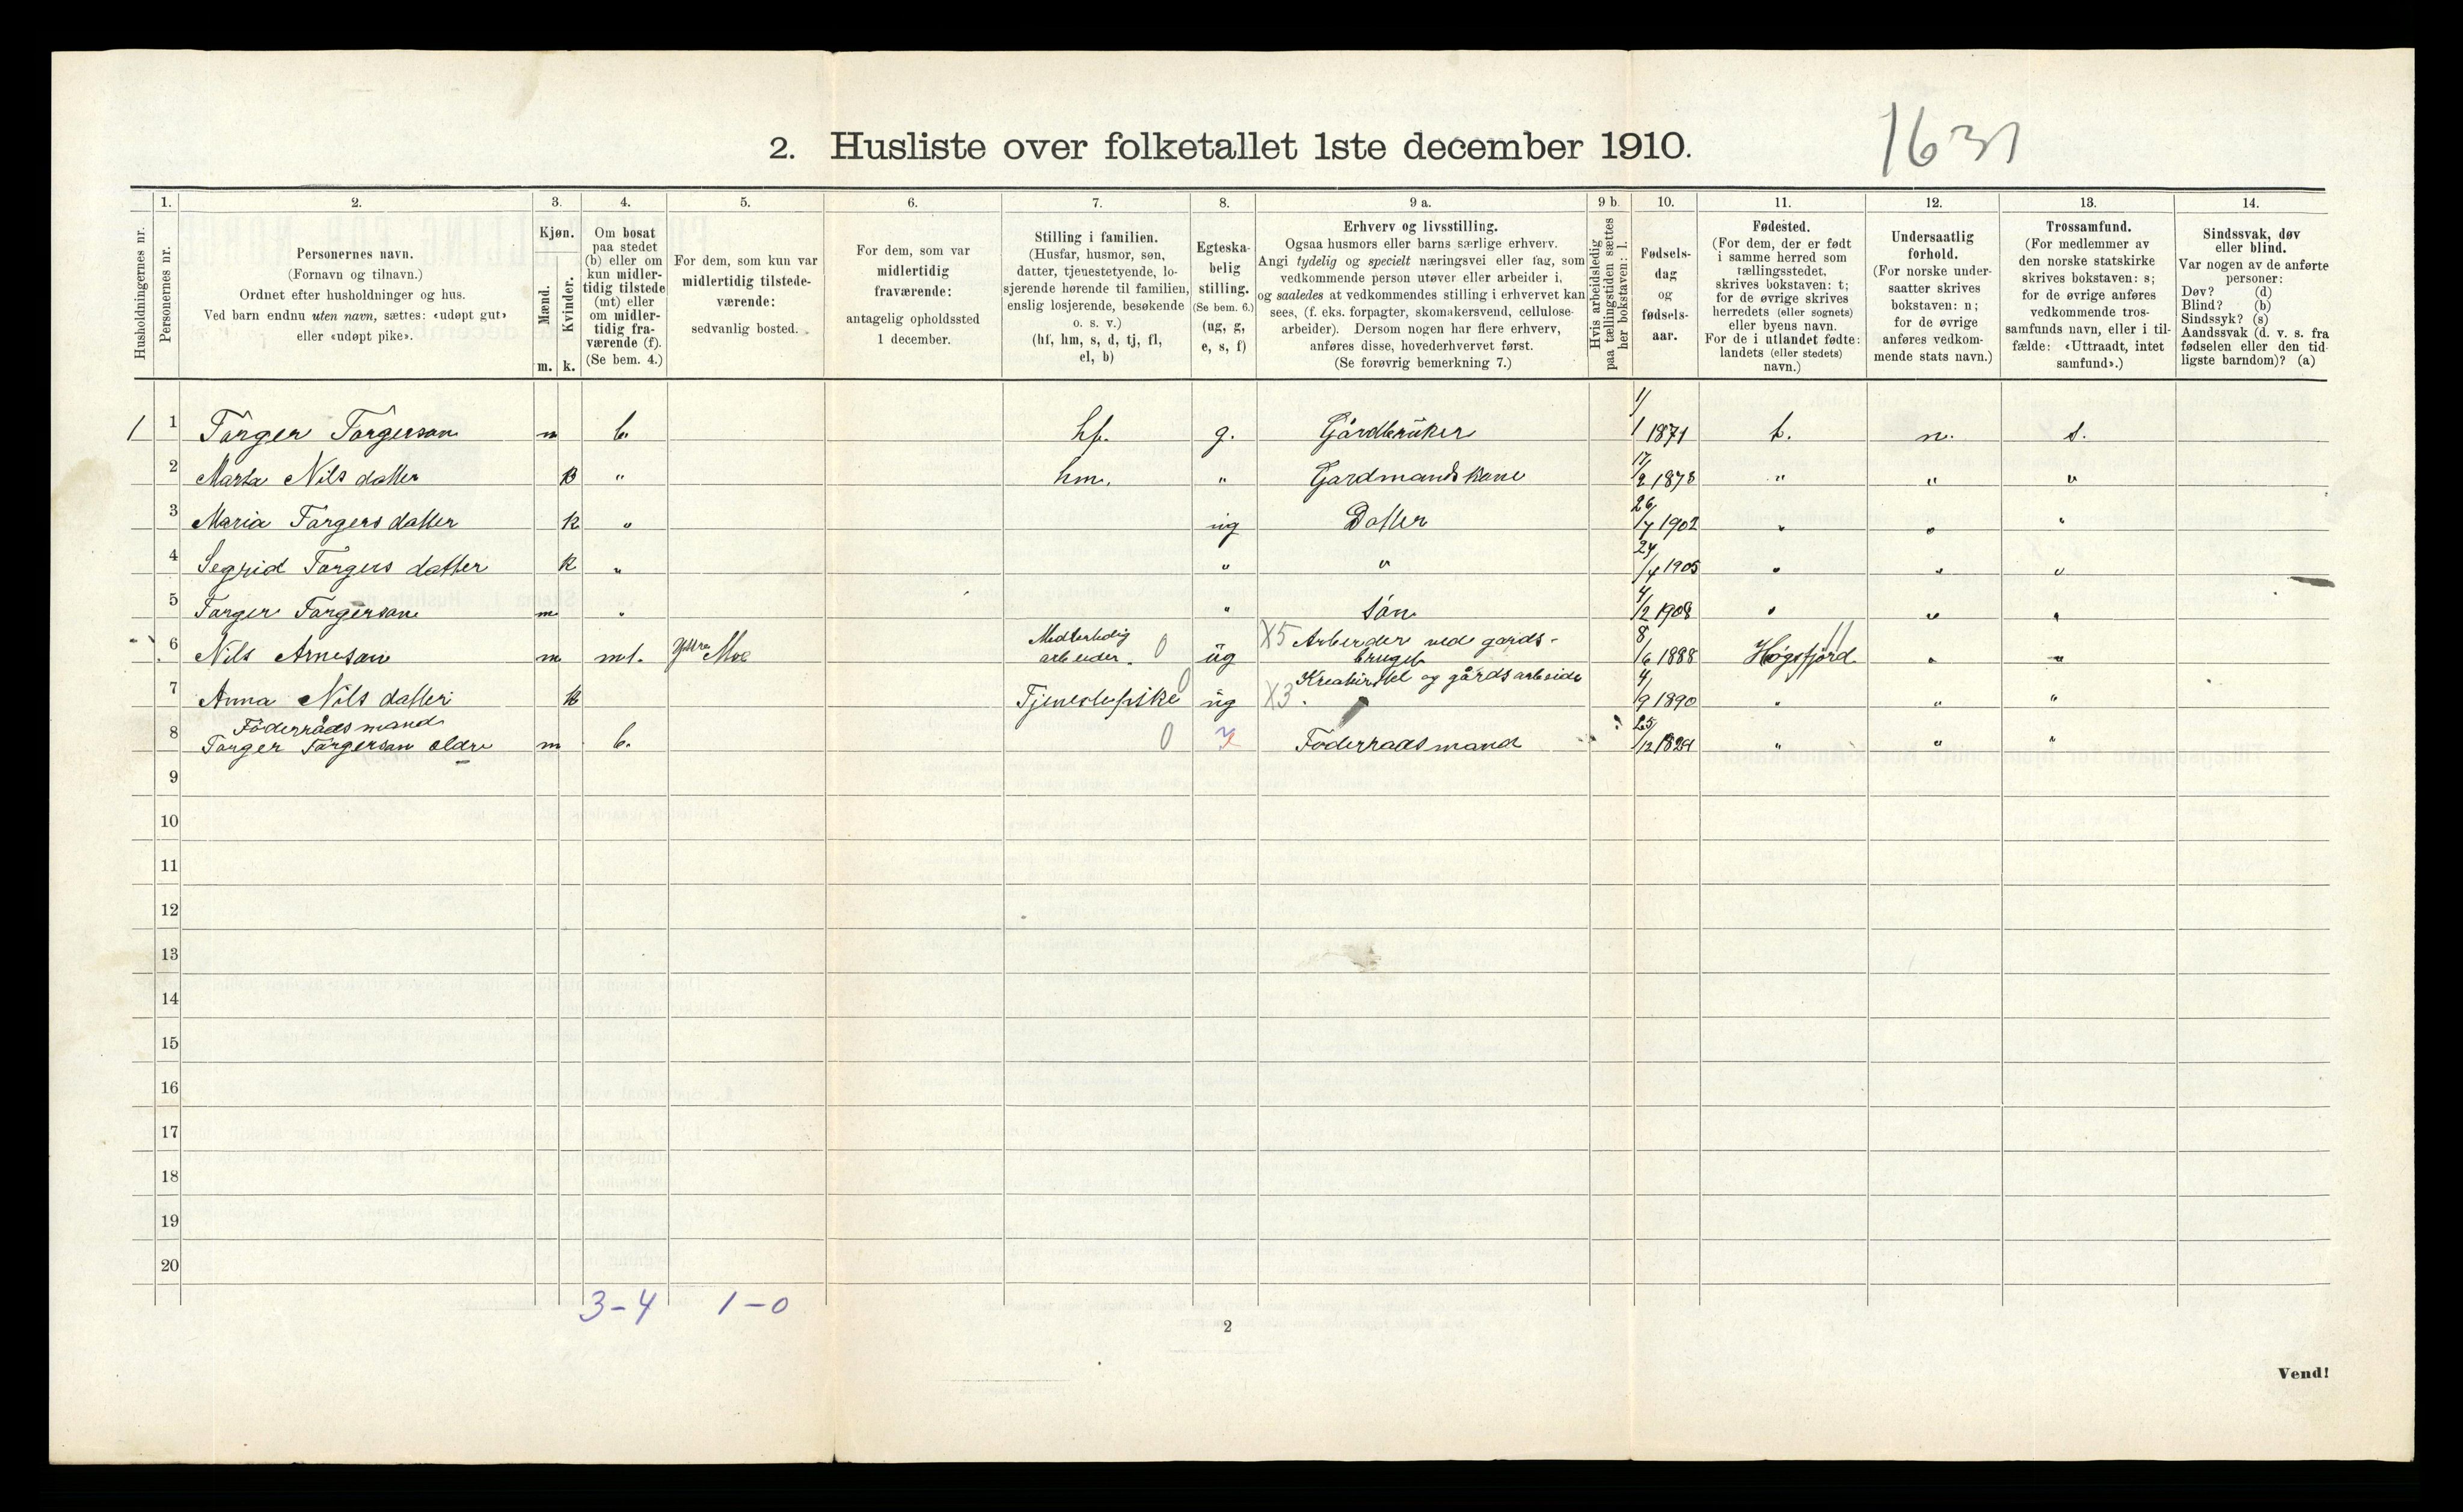 1631
2. Husliste over folketallet 1ste december 1910.
Husholdningernes nr.
1. Personernes nr.
2. Personernes navn.
(Fornavn og tilnavn.)
Ordnet efter husholdninger og hus.
Ved barn endnu uten navn, sættes: «udøpt gut»
eller «udøpt pike».
3. Kjøn.
Mænd. m.
Kvinder. k.
4. Om bosat
paa stedet
(b) eller om
kun midler-
tidig tilstede
(mt) eller
om midler-
tidig fra-
værende (f).
(Se bem. 4.)
5. For dem, som kun var
midlertidig tilstede-
værende:
sedvanlig bosted.
6. For dem, som var
midlertidig
fraværende:
antagelig opholdssted
1 december.
7. Stilling i familien.
(Husfar, husmor, søn,
datter, tjenestetyende, lo-
sjerende hørende til familien,
enslig losjerende, besøkende
o. s. v.)
(hf, hm, s, d, tj, fl,
el, b)
8. Egteska-
belig
stilling.
(Se bem. 6.)
(ug, g,
e, s, f)
9 a. Erhverv og livsstilling.
Ogsaa husmors eller barns særlige erhverv.
Angi tydelig og specielt næringsvei eller fag, som
vedkommende person utøver eller arbeider i,
og saaledes at vedkommendes stilling i erhvervet kan
sees, (f. eks. forpagter, skomakersvend, cellulose-
arbeider). Dersom nogen har flere erhverv,
anføres disse, hovederhvervet først.
(Se forøvrig bemerkning 7.)
9 b. Hvis arbeidsledig
paa tællingstiden sættes
her bokstaven: l.
10. Fødsels-
dag
og
fødsels-
aar.
11. Fødested.
(For dem, der er født
i samme herred som
tællingsstedet,
skrives bokstaven: t;
for de øvrige skrives
herredets (eller sognets)
eller byens navn.
For de i utlandet fødte:
landets (eller stedets)
navn.)
12. Undersaatlig
forhold.
(For norske under-
saatter skrives
bokstaven: n;
for de øvrige
anføres vedkom-
mende stats navn.)
13. Trossamfund.
(For medlemmer av
den norske statskirke
skrives bokstaven: s;
for de øvrige anføres
vedkommende tros-
samfunds navn, eller i til-
fælde: «Uttraadt, intet
samfund».)
14. Sindssvak, døv
eller blind.
Var nogen av de anførte
personer:
Døv? (d)
Blind? (b)
Sindssyk? (s)
Aandssvak (d. v. s. fra
fødselen eller den tid-
ligste barndom)? (a)
1 1 Torger Torgerson m b. hf. g. Gårdbrüker 1/1 1871 t. n. s.
2 Marta Nils datter k " hm. " Gardmands kone 17/2 1873 " " "
3 Maria Torgers datter k " ug Datter 26/7 1902 " " "
4 Segrid Torgers datter k " " " 24/4 1905 " " "
5 Torger Torgerson m " " Sön 4/2 1908 " " "
6 Nils Arneson m mt. Moe arbeider. 0 üg X5 Arbeider ved gards-
bruget 8/6 1888 Høgsfjord " "
7 Anna Nils datter k Tjenestepike 0 üg X3 Kreaturstel og gårdsarbeide 4/9 1890 " " "
Föderråds mand
8 Torger Torgerson eldre m b. 0 Föderraads mand 25/12 1829 " " "
9
10
11
12
13
14
15
16
17
18
19
20
3-4 1-0
2
Vend!